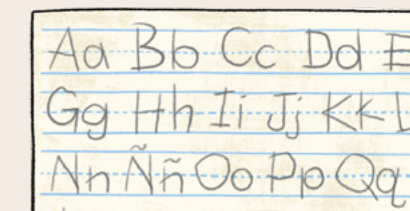 Aa Bb Cc Dd E
Gg Hh Ii Jj Kk L
Nn Ññ Oo Pp Qq